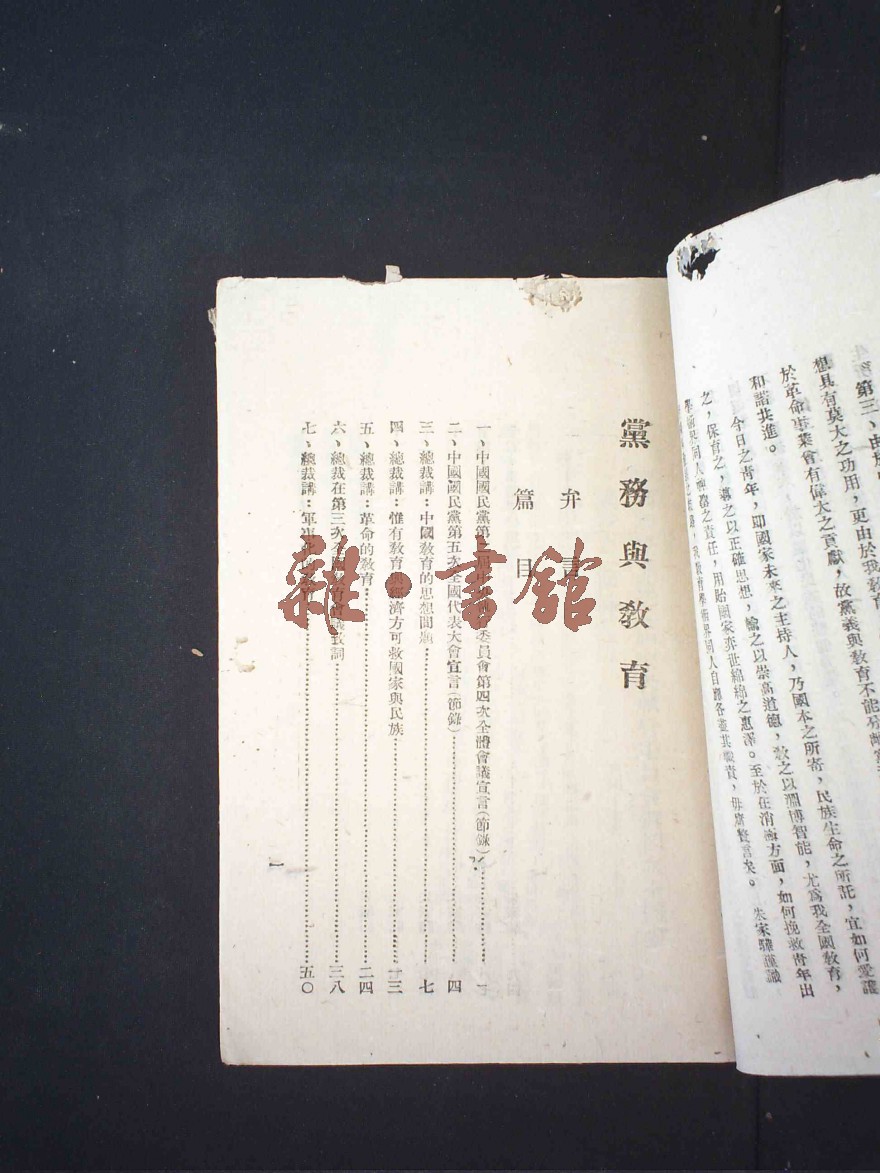 第三、由於
想具有莫大之功用，更由於我教育
於革命事業會有偉大之貢獻，故黨義與教育不能分離
和諧共進。
今日之青年，即國家未來之主持人，乃國本之所寄，民族生命之所託，宜如何愛護
之，保育之，導之以正確思想，喻之以崇高道德，教之以淵博智能，尤爲我全國教育，
學術界同人責任，用貽國家奕世綿綿之惠澤。至於在消極方面，如何挽救青年出
教育學術界同人自應各盡其職責，毋庸贅言矣。
朱家驊謹識
黨務與教育
弁言
篇目
一、中國國民黨第 委員會第四次全體會議宣言（節錄）……一
二、中國國民黨第五次全國代表大會宣言（節錄）……四
三、總裁講：中國教育的思想問題……七
四、總裁講：惟有教育與經濟方可救國家與民族……一三
五、總裁講：革命的教育……二四
六、總裁在第三次全國教育會議致詞……三八
七、總裁講：軍……五〇
一
雜·書館